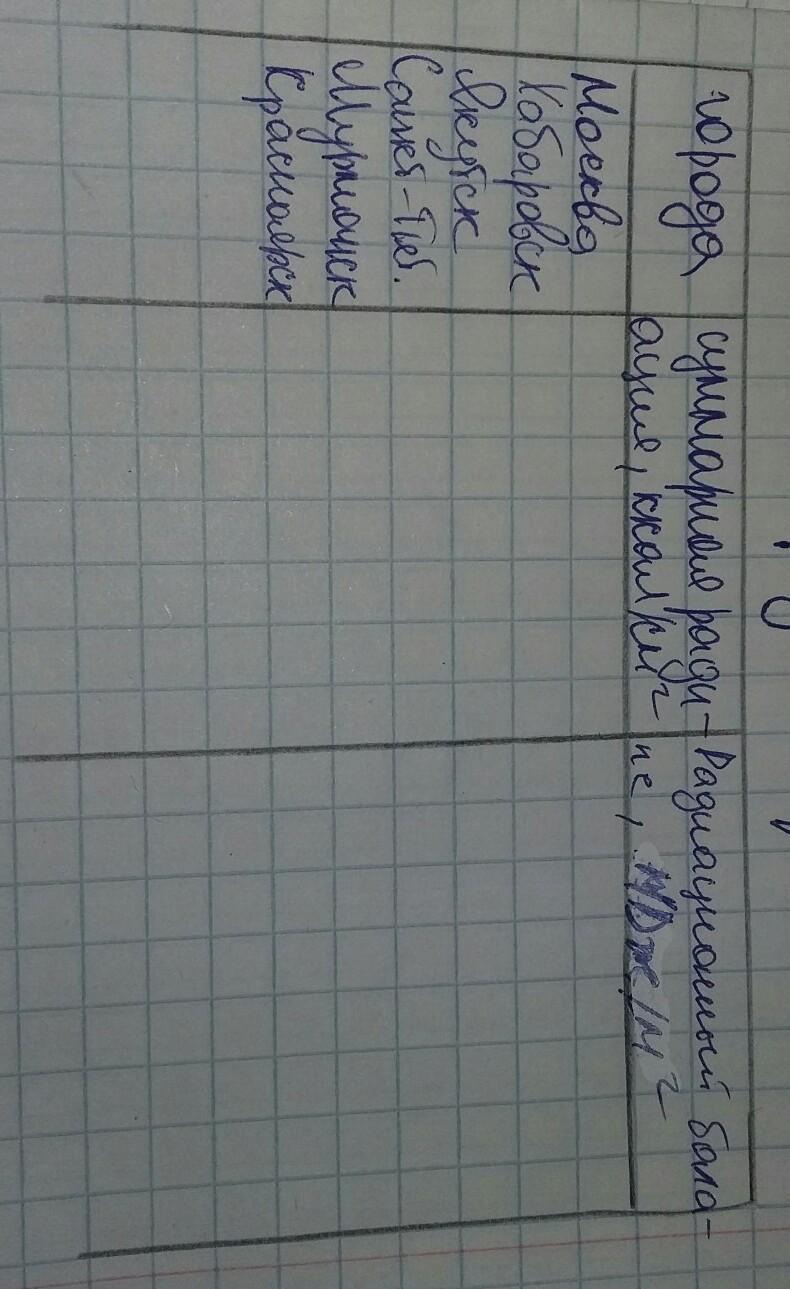 города
суммарная ради-
ация, ккал/см²
Радиационный бала-
нс, МДж/м²
Москва
Хабаровск
Якутск
Санкт-Пет.
Мурманск
Красноярск